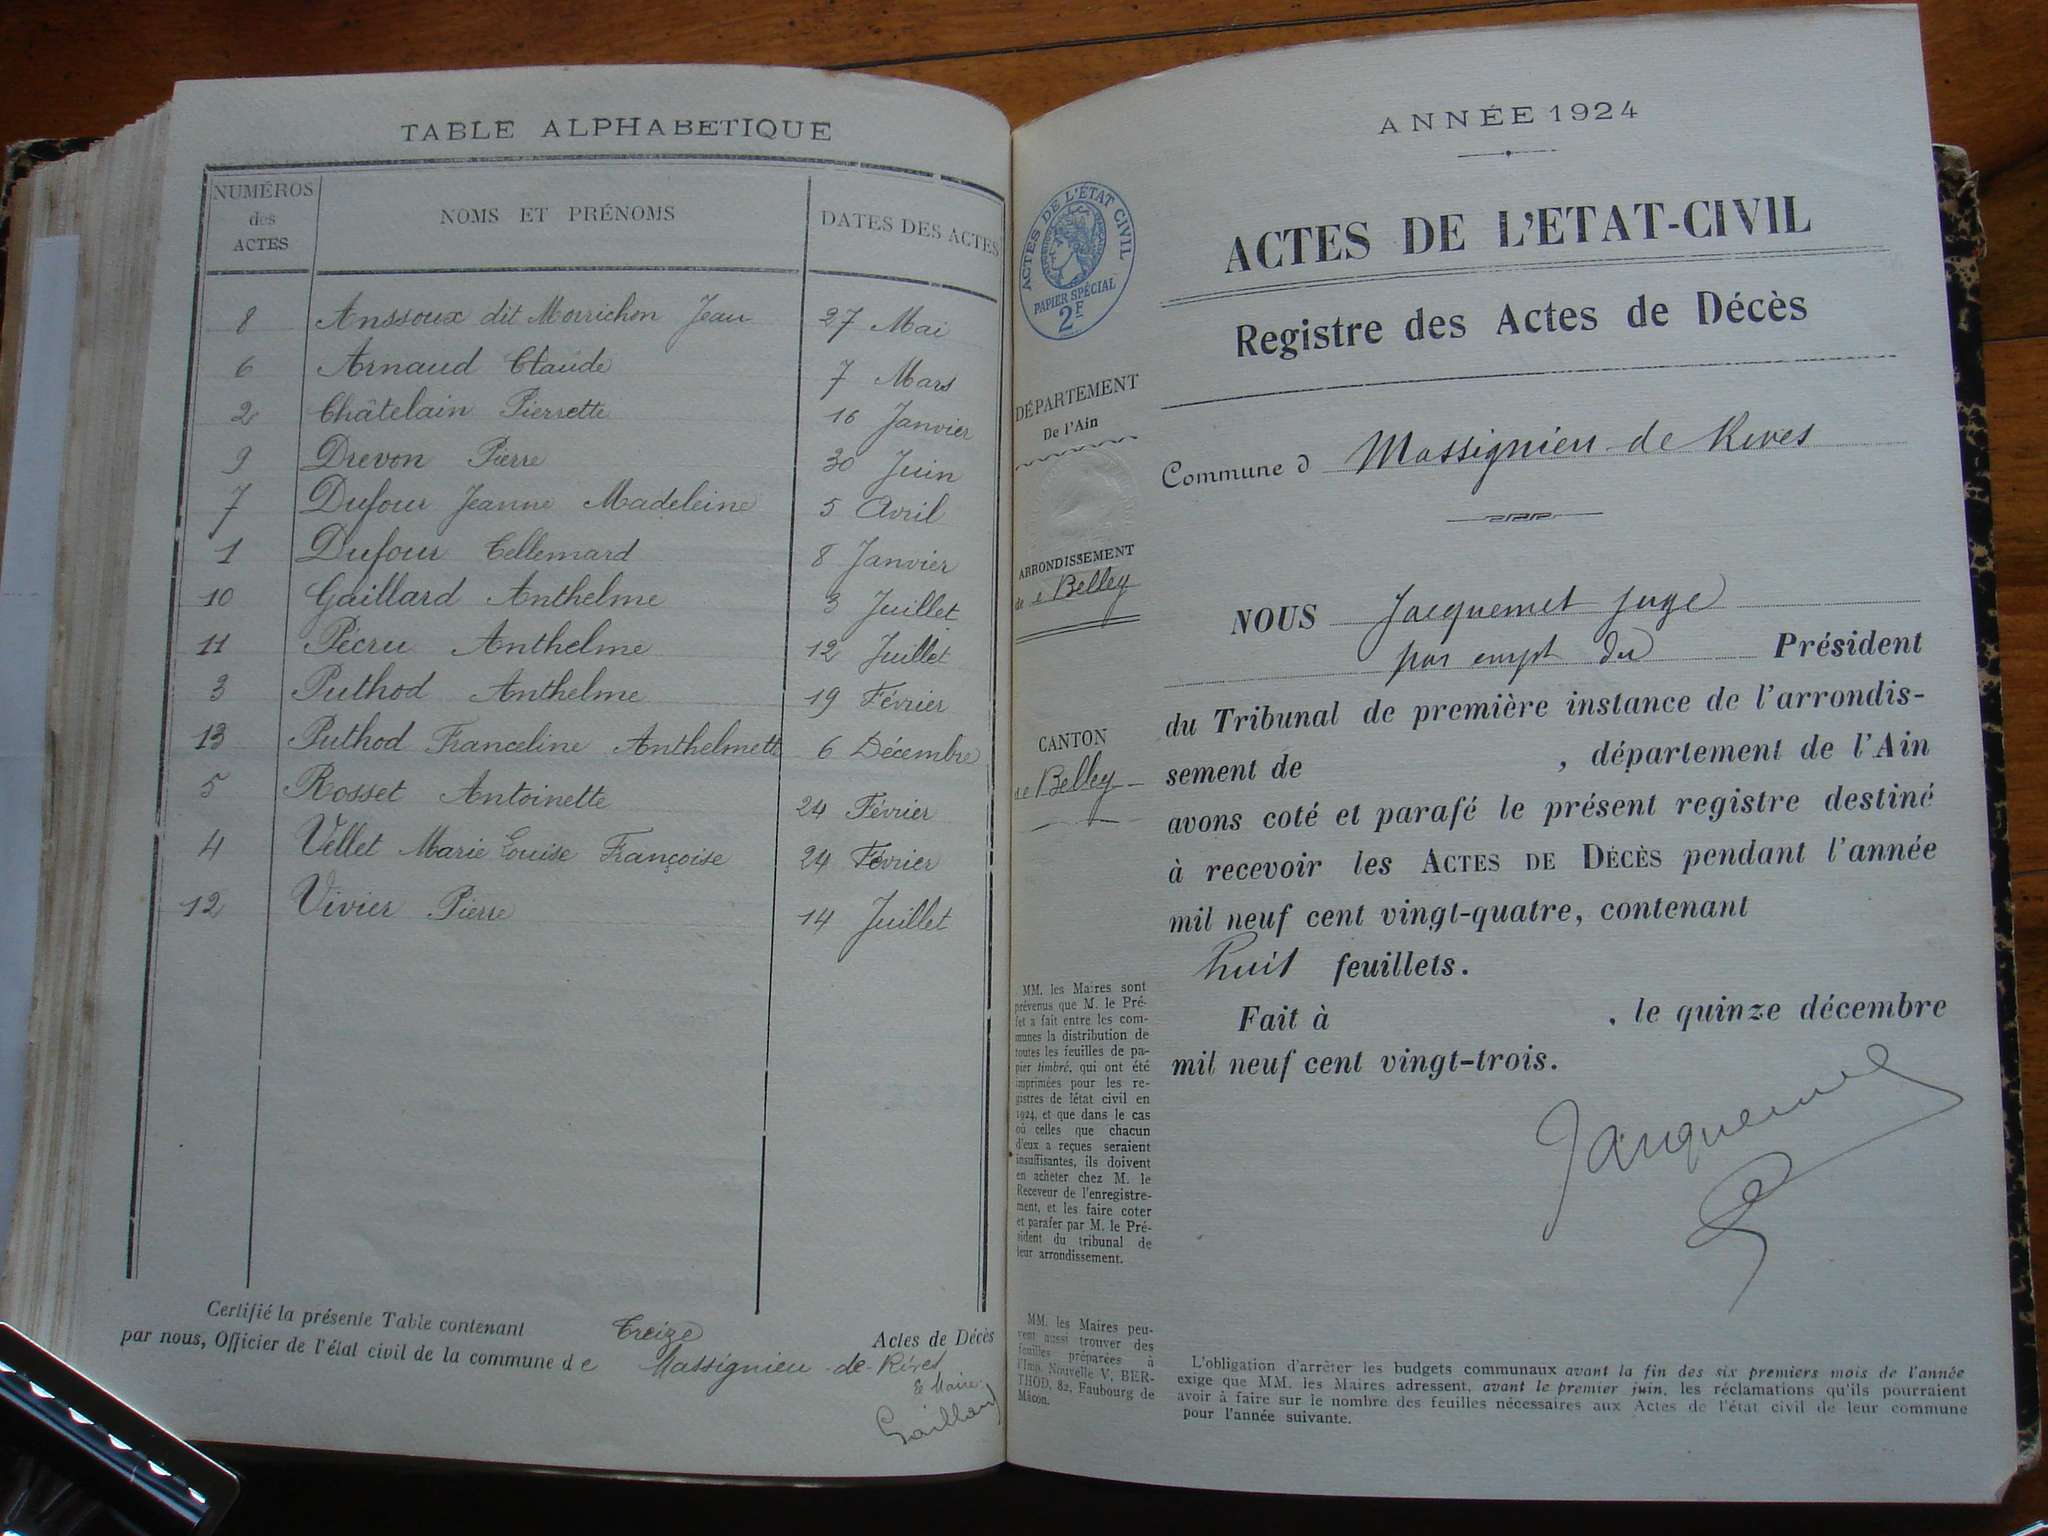 TABLE ALPHABETIQUE
NUMÉROS des ACTES
NOMS ET PRÉNOMS
DATES DES ACTES
8 Anssoux dit Morrichon Jean 27 Mai
6 Arnaud Claude 7 Mars
2 Châtelain Pierrette 16 Janvier
9 Drevon Pierre 30 Juin
7 Dufour Jeanne Madeleine 5 Avril
1 Dufour 8 Janvier
10 Gaillard Anthelme 3 Juillet
11 Pécru Anthelme 12 Juillet
3 Puthod Anthelme 19 Février
13 Puthod Franceline Anthelmett 6 Décembre
5 Rosset Antoinette 24 Février
4 Vellet Marie Louise Françoise 24 Février
12 Vivier Pierre 14 Juillet
Certifié la présente Table contenant Treize Actes de Décès
par nous, Officier de l'état civil de la commune de Massignieu-de-Rives
Le Maire
Gaillard
ANNÉE 1924
ACTES DE L'ÉTAT CIVIL
PAPIER SPÉCIAL
2F
ACTES DE L'ETAT-CIVIL
Registre des Actes de Décès
DÉPARTEMENT
De l'Ain
Commune d Massignieu-de Rives
ARRONDISSEMENT
de Belley
CANTON
de Belley
NOUS Jacquemet juge
par empt du Président
du Tribunal de première instance de l'arrondis-
sement de , département de l'Ain
avons coté et parafé le présent registre destiné
à recevoir les ACTES DE DÉCÈS pendant l'année
mil neuf cent vingt-quatre, contenant
huit feuillets.
Fait à , le quinze décembre
mil neuf cent vingt-trois.
Jacquemet
MM. les Maires sont
prévenus que M. le Pré-
fet a fait entre les com-
munes la distribution de
toutes les feuilles de pa-
pier timbré, qui ont été
imprimées pour les re-
gistres de létat civil en
1924, et que dans le cas
où celles que chacun
d'eux a reçues seraient
insuffisantes, ils doivent
en acheter chez M. le
Receveur de l'enregistre-
ment, et les faire coter
et parafer par M. le Pré-
sident du tribunal de
leur arrondissement.
MM. les Maires peu-
vent aussi trouver des
feuilles préparées à
l'Imp. Nouvelle V. BER-
THOD, 82, Faubourg de
Mâcon.
L'obligation d'arrêter les budgets communaux avant la fin des six premiers mois de l'année
exige que MM. les Maires adressent, avant le premier juin, les réclamations qu'ils pourraient
avoir à faire sur le nombre des feuilles nécessaires aux Actes de l'état civil de leur commune
pour l'année suivante.